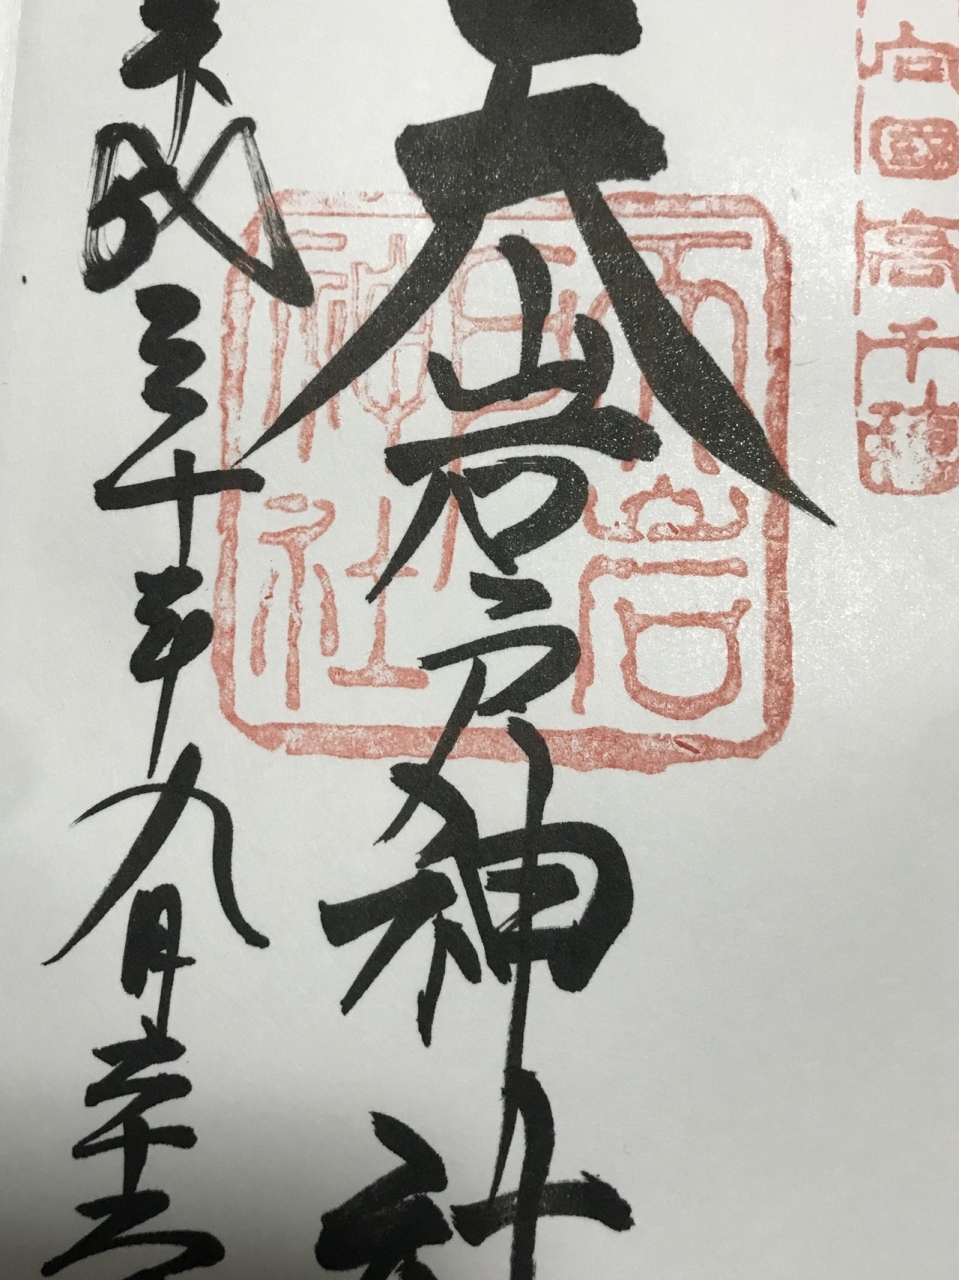 宮國高千穂
天岩戸神社
天岩戸神社
平成三十年九月